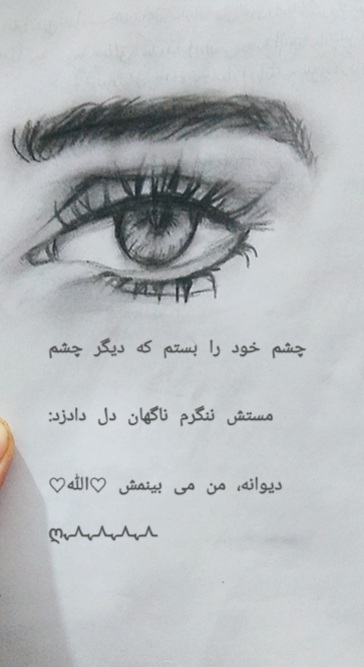 چشم خود را بستم که دیگر چشم
مستش ننگرم ناگهان دل دادزد:
دیوانه، من می بینمش ♡الله♡